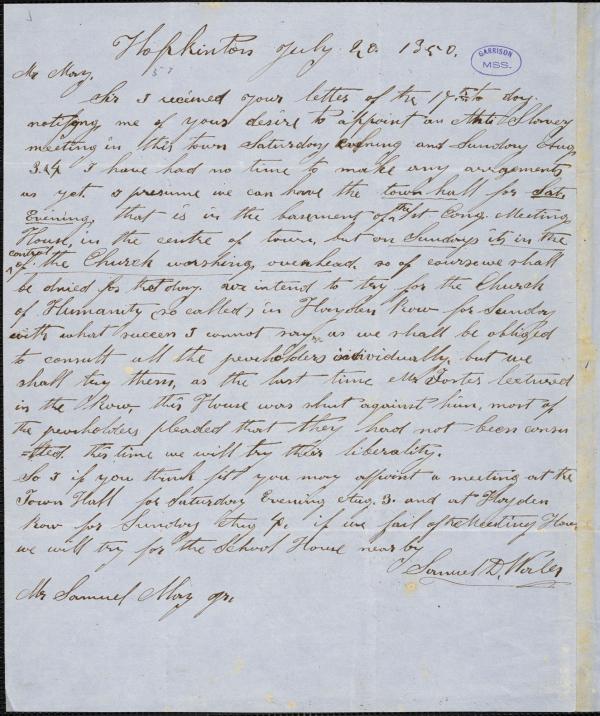 Hopkinton July 20. 1850.
GARRISON
MSS.
Mr May,
Sir I recieved your letter of the 17th to day.
notifying me of your desire to appoint an Anti Slavery
meeting in this town Saturday evening and Sunday Aug.
3.&4. I have had no time to make any arrangements
as yet. I presume we can have the town hall for Sat.
Evening, that is in the basement of the 1st Cong. Meeting
House, in the centre of town, but on Sundays its in the
control
of the Church worshing overhead. so of course we shall
be denied for that day. we intend to try for the Church
of Humanity (so called) in Hayden Row for Sunday
with what success I cannot say, as we shall be obliged
to consult all the pewholders individually, but we
shall try them, as the last time Mr Foster lectured
in the Row, this House was shut against him, most of
the pewholders pleaded that they had not been consu
=lted. this time we will try their liberality.
So I if you think fit you may appoint a meeting at the
Town Hall for Saturday Evening Aug. 3. and at Hayden
Row for Sunday Aug 4. if we fail of the Meeting House
we will try for the School House near by
Samuel D.
Mr Samuel May Jr.